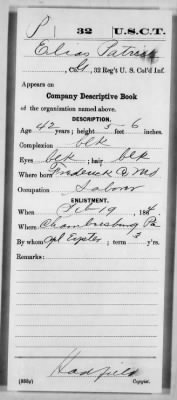 P 32 U.S.C.T.
Elias Patrick
, 32 Reg't U. S. Col'd Inf.
Appears on
Company Descriptive Book
of the organization named above.
DESCRIPTION.
Age 42 years; height 5 feet 6 inches.
Complexion blk
Eyes blk ; hair blk
Where born Frederick Co Md
Occupation Laborer
ENLISTMENT.
When Feb 19 , 1864
Where Chambersburg Pa
By whom ; term 3 y'rs.
Remarks:
Hadfield
(383g) Copyist.